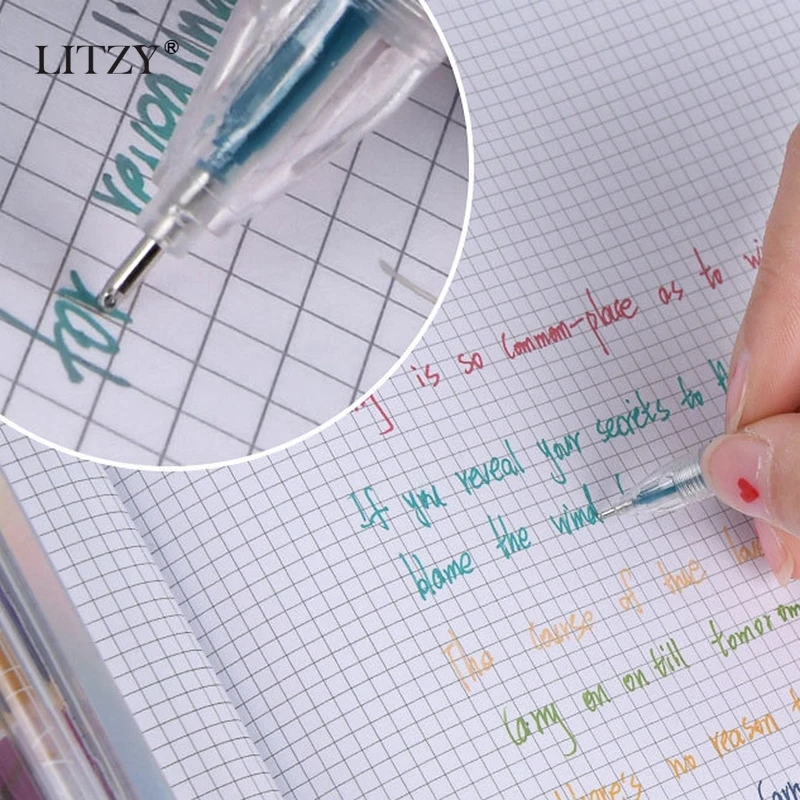 LITZY®
for
is so common-place as to
If you reveal your secrets to
blame the wind
The course of true
Carry on on till tomorrow
There's no reason